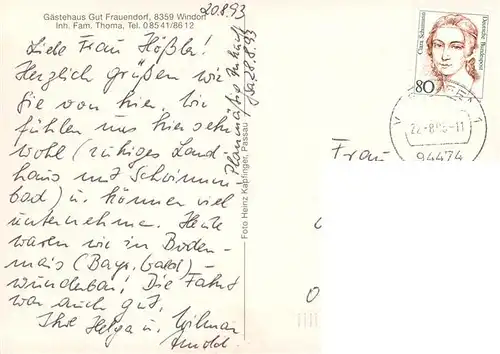 Gästehaus Gut Frauendorf, 8359 Windorf
Inh. Fam. Thoma, Tel. 08541/8612
20.8.93
Liebe Frau Hößler!
Herzlich grüßen wir
Sie von hier. Wir
fühlen uns hier sehr
wohl (ruhiges Land-
haus mit Schwimm-
bad) u. können viel
unternehmen. Heute
waren wir in Boden-
mais (Bayr. Wald) -
wunderbar! Die Fahrt
war auch gut.
Ihre Helga u. Wilmar
Arnold.
Planmäßige Ankunft
Sa, 28.8.93
Foto Heinz Kapfinger, Passau
Clara Schumann
Deutsche Bundespost
80
22.-8.93-11
94474
Frau